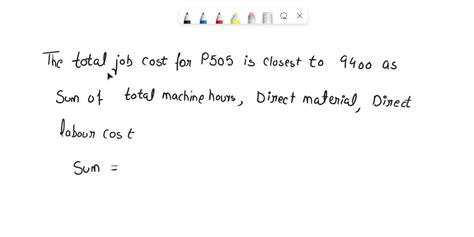 The total job cost for P505 is closest to 9400 as
Sum of total machine hours, Direct material, Direct
labour cost
Sum =